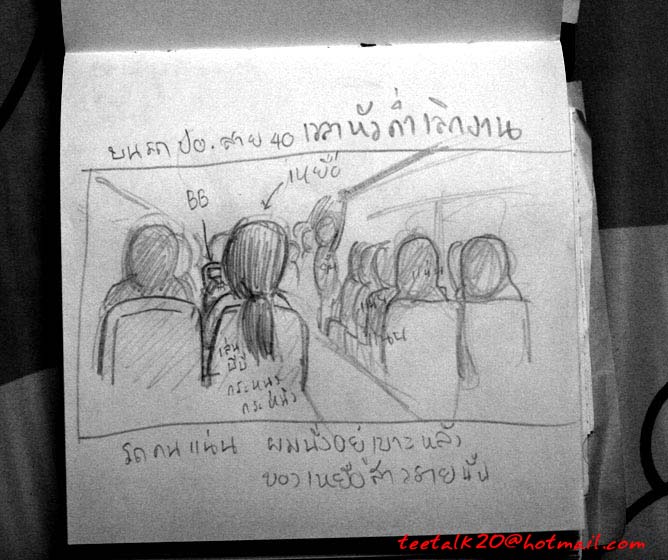 บนรถ ปอ. สาย 40 เวลาหัวค่ำเลิกงาน
เหยื่อ
BB
แน่น
แน่น
แน่น
เล่น
บีบี
กระหน่ำ
รถคนแน่น ผมนั่งอยู่เบาะหลัง
ของเหยื่อสาวรายนั้น
teetalk20@hotmail.com